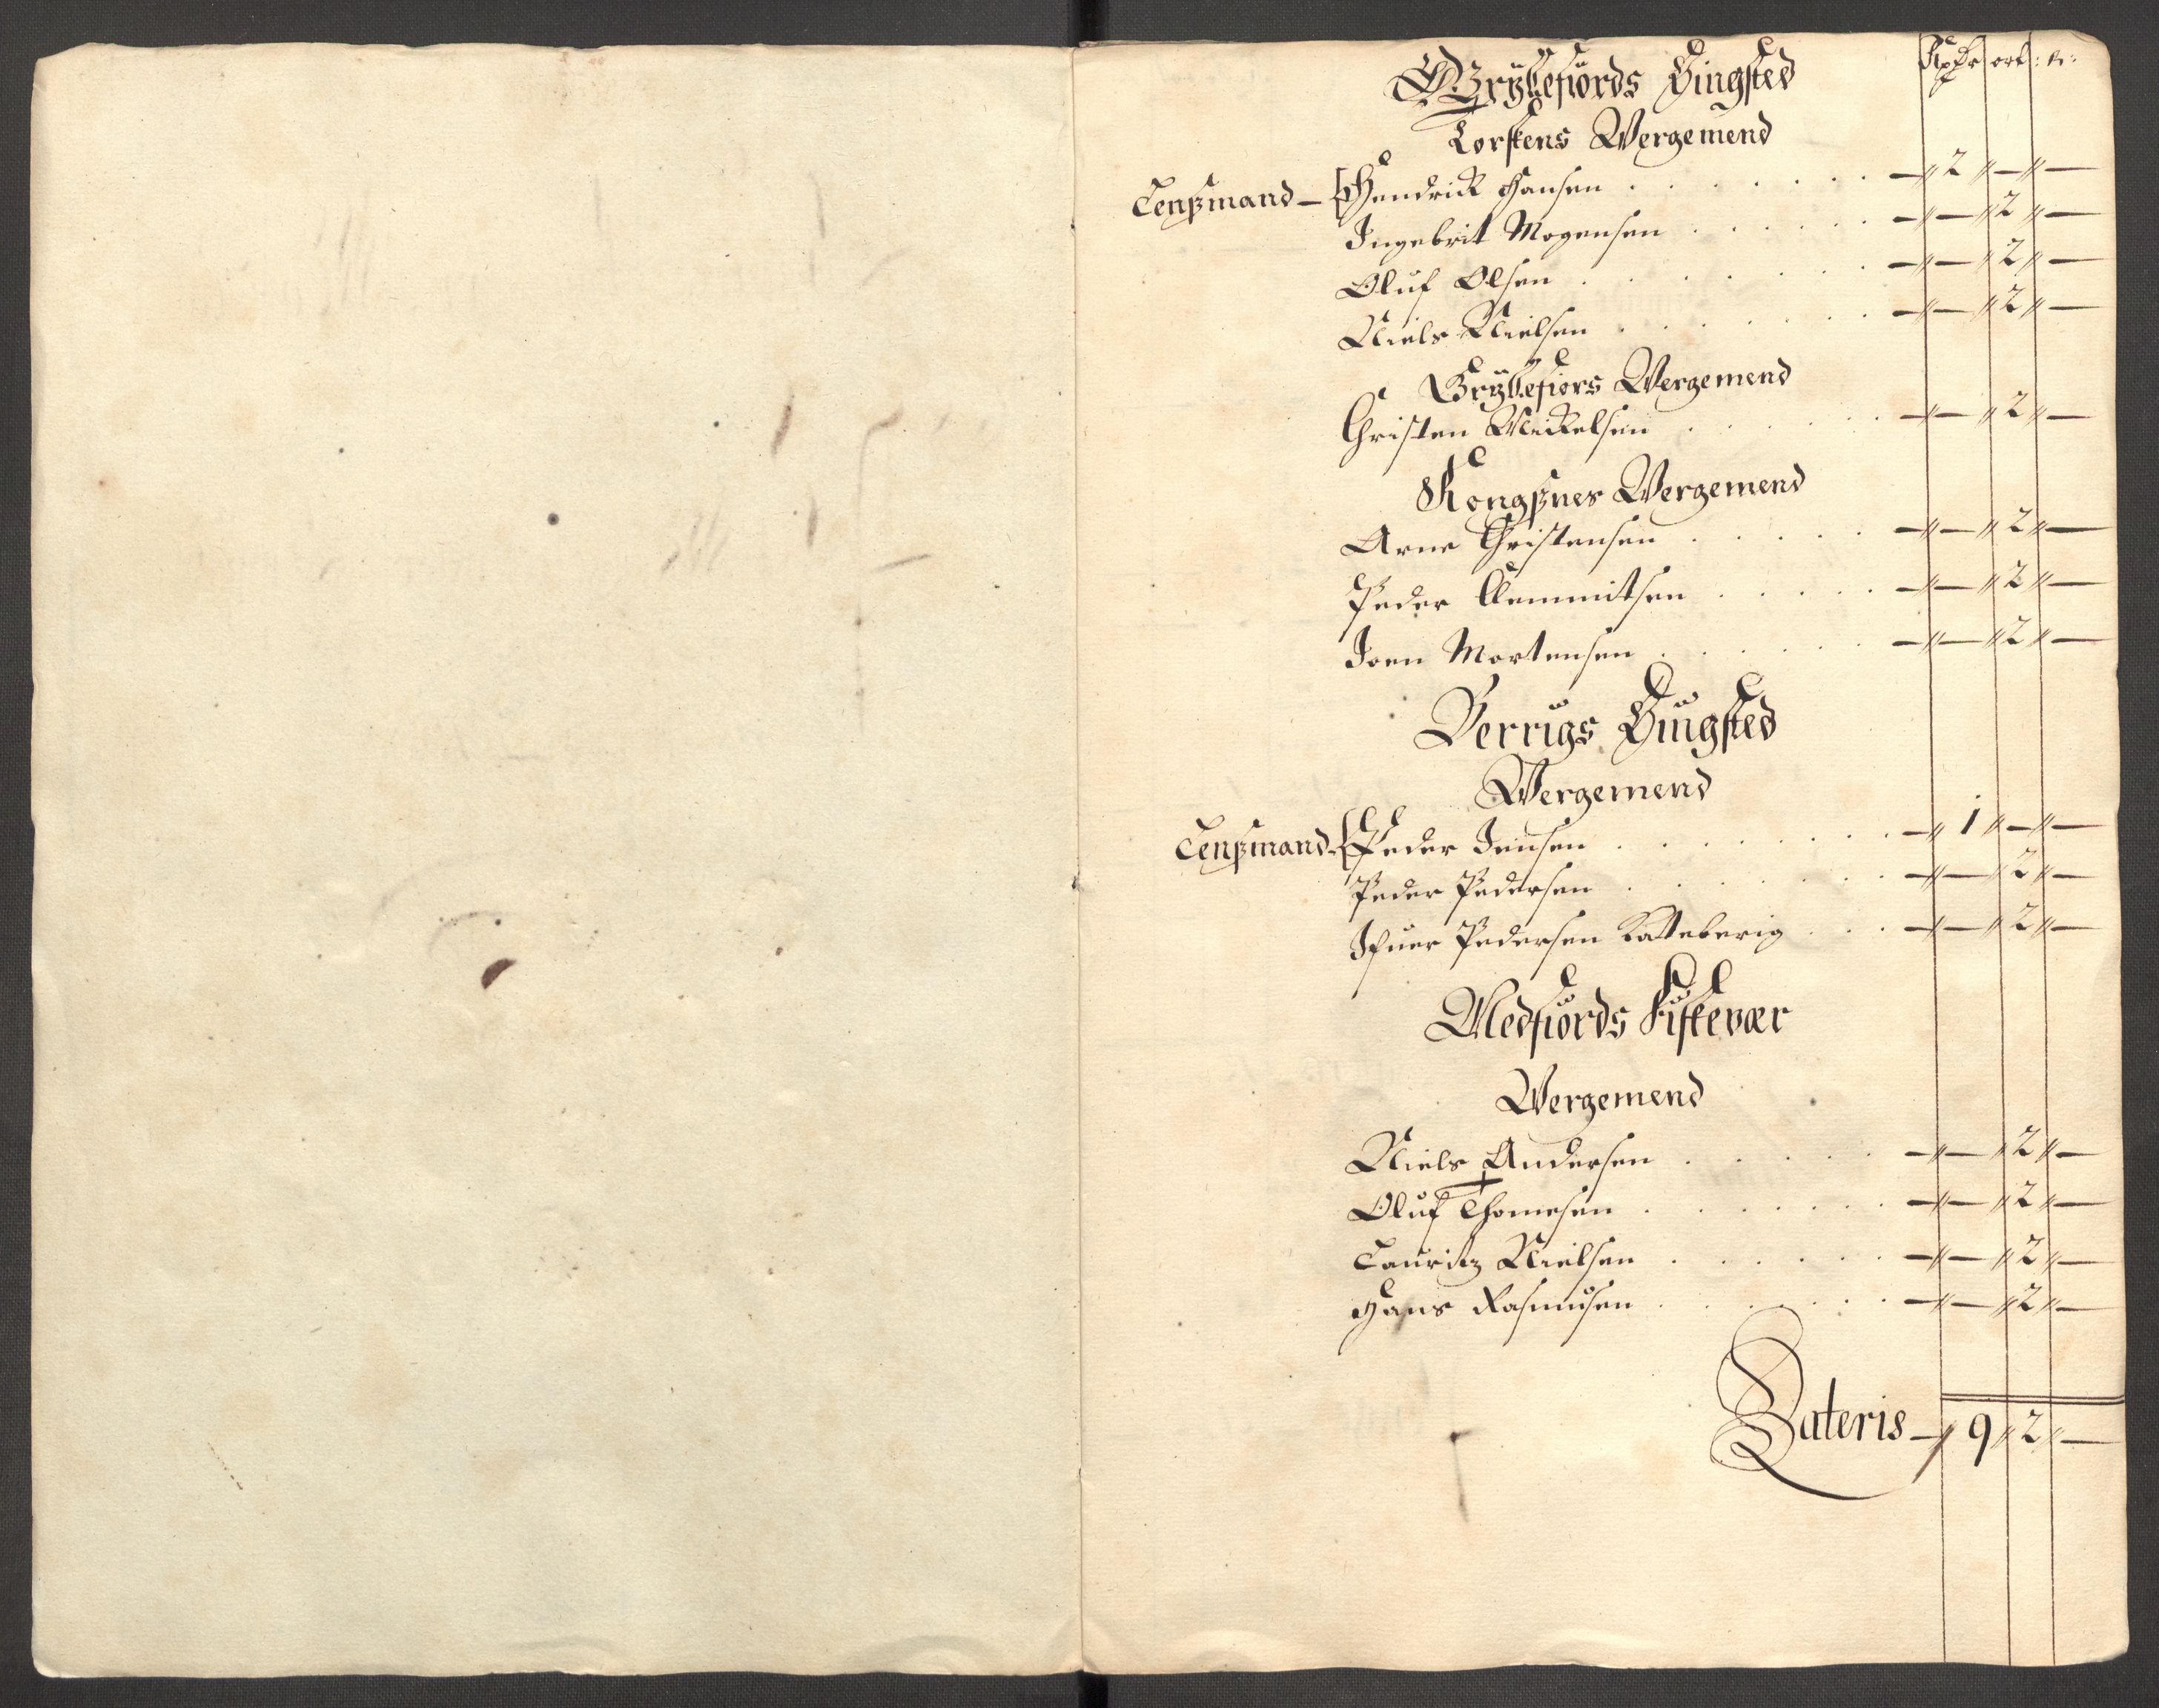 Rixdr ort: ß:
Gryllefiords Tingsted
Torskens Wergemend
Lenßmand - Hendrich Hansen . . . . . . — 2 — —
Ingebrit Mogensen . . . . . — — 2 —
Oluf Olsen . . . . . . — — 2 —
Niels Nielsen . . . . . . — — 2 —
Gryllefiors Wergemend
Christen Mickelsen . . . . . — — 2 —
Kongßnes Wergemend
Arne Christensen . . . . . — — 2 —
Peder Clemmitsen . . . . — — 2 —
Joen Mortensen . . . . . — — 2 —
Berrigs Tingsted
Wergemend
Lenßmand - Peder Jensen . . . . . . — 1 — —
Peder Pedersen . . . . . . — — 2 —
Ifuer Pedersen Katteberig . . — — 2 —
Medfiords Fiskevær
Wergemend
Niels Andersen . . . . . — — 2 —
Oluf Thomesen . . . . . . — — 2 —
Lauritz Nielsen . . . . . — — 2 —
Hans Rasmusen . . . . . — — 2 —
Lateris — 9 2 —